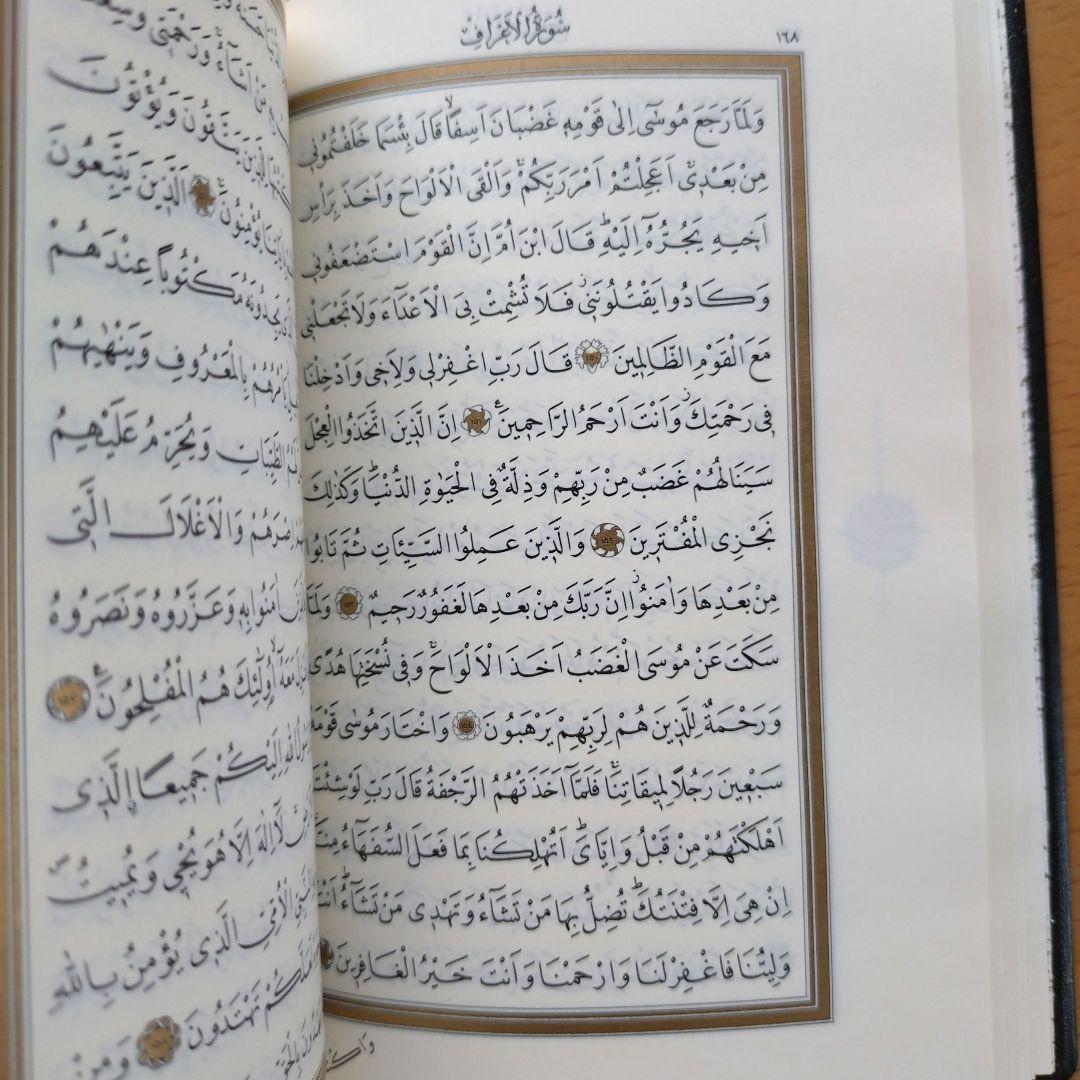 ١٦٨
سُورَةُ الْاَعْرَافِ
وَلَمَّا رَجَعَ مُوسٰٓى اِلٰى قَوْمِهٖ غَضْبَانَ اَسِفًاۙ قَالَ بِئْسَمَا خَلَفْتُمُونٖى
مِنْ بَعْدٖىۚ اَعَجِلْتُمْ اَمْرَ رَبِّكُمْۚ وَاَلْقَى الْاَلْوَاحَ وَاَخَذَ بِرَأْسِ
اَخٖيهِ يَجُرُّهُٓ اِلَيْهِؕ قَالَ ابْنَ اُمَّ اِنَّ الْقَوْمَ اسْتَضْعَفُونٖى
وَكَادُوا يَقْتُلُونَنٖىؗ فَلَا تُشْمِتْ بِىَ الْاَعْدَٓاءَ وَلَا تَجْعَلْنٖى
مَعَ الْقَوْمِ الظَّالِمٖينَ ١٥٠ قَالَ رَبِّ اغْفِرْ لٖى وَلِاَخٖى وَاَدْخِلْنَا
فٖى رَحْمَتِكَؗ وَاَنْتَ اَرْحَمُ الرَّاحِمٖينَ ١٥١ اِنَّ الَّذٖينَ اتَّخَذُوا الْعِجْلَ
سَيَنَالُهُمْ غَضَبٌ مِنْ رَبِّهِمْ وَذِلَّةٌ فِى الْحَيٰوةِ الدُّنْيَاؕ وَكَذٰلِكَ
نَجْزِى الْمُفْتَرٖينَ ١٥٢ وَالَّذٖينَ عَمِلُوا السَّيِّـَٔاتِ ثُمَّ تَابُوا
مِنْ بَعْدِهَا وَاٰمَنُواؗ اِنَّ رَبَّكَ مِنْ بَعْدِهَا لَغَفُورٌ رَحٖيمٌ ١٥٣ وَلَمَّا
سَكَتَ عَنْ مُوسَى الْغَضَبُ اَخَذَ الْاَلْوَاحَۚ وَفٖى نُسْخَتِهَا هُدًى
وَرَحْمَةٌ لِلَّذٖينَ هُمْ لِرَبِّهِمْ يَرْهَبُونَ ١٥٤ وَاخْتَارَ مُوسٰى قَوْمَهُ
سَبْعٖينَ رَجُلًا لِمٖيقَاتِنَاۚ فَلَمَّٓا اَخَذَتْهُمُ الرَّجْفَةُ قَالَ رَبِّ لَوْ شِئْتَ
اَهْلَكْتَهُمْ مِنْ قَبْلُ وَاِيَّاىَؕ اَتُهْلِكُنَا بِمَا فَعَلَ السُّفَهَٓاءُ مِنَّاۚ
اِنْ هِىَ اِلَّا فِتْنَتُكَؕ تُضِلُّ بِهَا مَنْ تَشَٓاءُ وَتَهْدٖى مَنْ تَشَٓاءُؕ اَنْتَ
وَلِيُّنَا فَاغْفِرْ لَنَا وَارْحَمْنَا وَاَنْتَ خَيْرُ الْغَافِرٖينَ
مَنْ اَشَٓاءُۚ وَرَحْمَتٖى وَسِعَتْ
يَتَّقُونَ وَيُؤْتُونَ
يُؤْمِنُونَۚ اَلَّذٖينَ يَتَّبِعُونَ
يَجِدُونَهُ مَكْتُوبًا عِنْدَهُمْ
بِالْمَعْرُوفِ وَيَنْهٰيهُمْ
الطَّيِّبَاتِ وَيُحَرِّمُ عَلَيْهِمُ
اِصْرَهُمْ وَالْاَغْلَالَ الَّتٖى
اٰمَنُوا بِهٖ وَعَزَّرُوهُ وَنَصَرُوهُ
مَعَهُٓۙ اُو۬لٰٓئِكَ هُمُ الْمُفْلِحُونَ ١٥٧
اللّٰهِ اِلَيْكُمْ جَمٖيعًاۨ الَّذٖى
لَٓا اِلٰهَ اِلَّا هُوَ يُحْيٖى وَيُمٖيتُ
الْاُمِّىِّ الَّذٖى يُؤْمِنُ بِاللّٰهِ
تَهْتَدُونَ ١٥٨ وَمِنْ